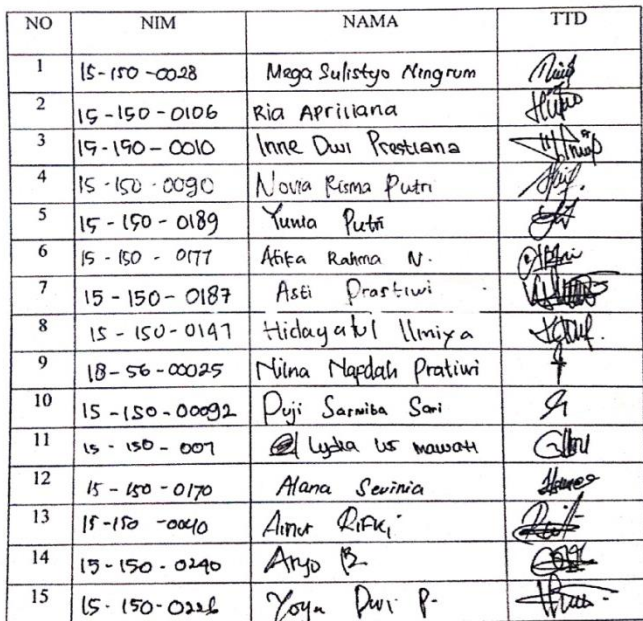 NO NIM NAMA TTD
1 15-150-0028 Mega Sulistyo Ningrum
2 15-150-0106 Ria Apriliana
3 15-150-0010 Inne Dwi Prestiana
4 15-150-0090 Novia Risma Putri
5 15-150-0189 Yunia Putri
6 15-150-0177 Atika Rahma N.
7 15-150-0187 Asti Prastiwi
8 15-150-0147 Hidayatul Ilmiya
9 18-56-00025 Nilna Nafdah Pratiwi
10 15-150-00092 Puji Sarwiba Sari
11 15-150-007 Lydia us mawati
12 15-150-0170 Alana Sevinia
13 15-150-0040 Ainur Rifki
14 15-150-0240 Aryo B
15 15-150-0226 Yoya Dwi P.